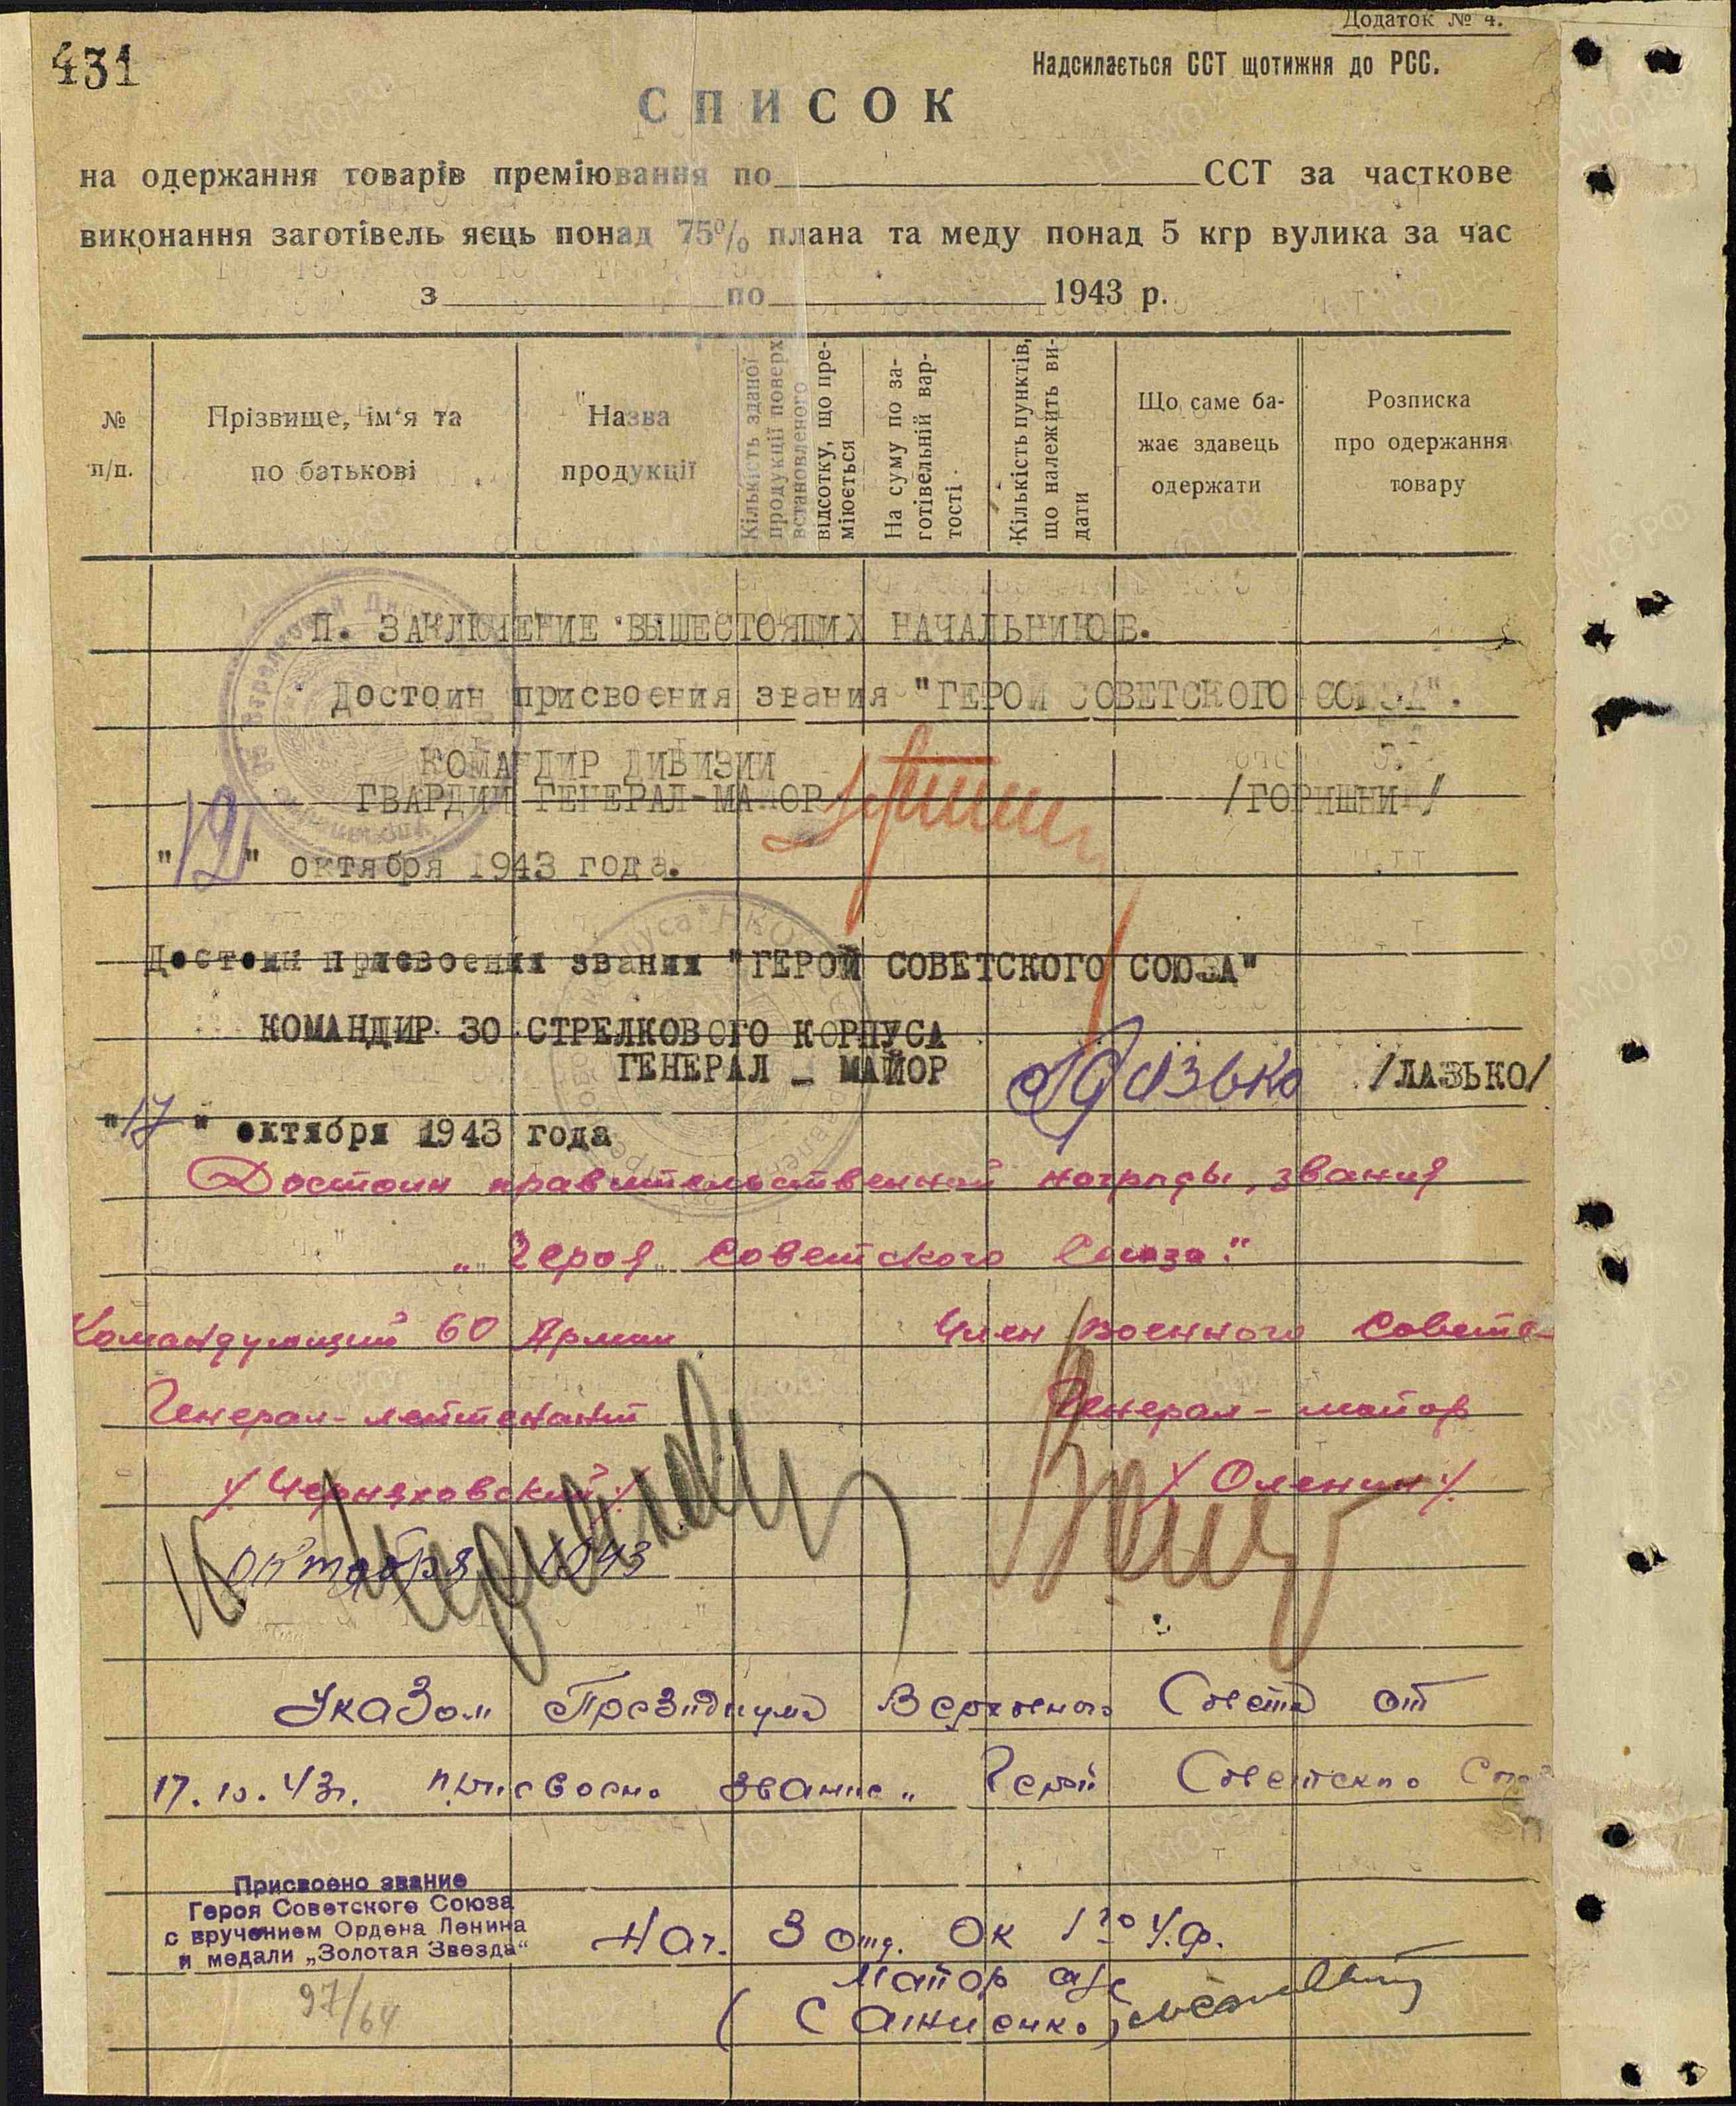 Додаток № 4.
431
Надсилається ССТ щотижня до РСС.
СПИСОК
на одержання товарів преміювання по ССТ за часткове
виконання заготівель яєць понад 75% плана та меду понад 5 кгр вулика за час
з по 1943 р.
№
п/п.
Прізвище, ім'я та
по батькові
Назва
продукції
Кількість зданої
продукції поверх
встановленого
відсотку, що пре-
міюється
На суму по за-
готівельній вар-
тості
Кількість пунктів,
що належить ви-
дати
Що саме ба-
жає здавець
одержати
Розписка
про одержання
товару
П. ЗАКЛЮЧЕНИЕ ВЫШЕСТОЯЩИХ НАЧАЛЬНИКОВ.
Достоин присвоения звания "ГЕРОЙ СОВЕТСКОГО СОЮЗА".
КОМАНДИР ДИВИЗИИ
ГВАРДИИ ГЕНЕРАЛ-МАЙОР /ГОРИШНИЙ/
"12" октября 1943 года.
Достоин присвоения звания "ГЕРОЙ СОВЕТСКОГО СОЮЗА"
КОМАНДИР 30 СТРЕЛКОВОГО КОРПУСА
ГЕНЕРАЛ _ МАЙОР Лазько /ЛАЗЬКО/
"17" октября 1943 года
Достоин правительственной награды, звания
„Героя Советского Союза."
Командующий 60 Армии Член Военного Совета
Генерал-лейтенант Генерал-майор
/Черняховский/ /Оленин/
октября 1943
Указом Президиума Верховного Совета от
17.10.43г. присвоено звание „Герой Советского
Присвоено звание
Героя Советского Союза
с вручением Ордена Ленина
и медали „Золотая Звезда"
Нач. 3 отд. ОК 1го У.Ф.
майор а/с
(Сажиенко)
97/64